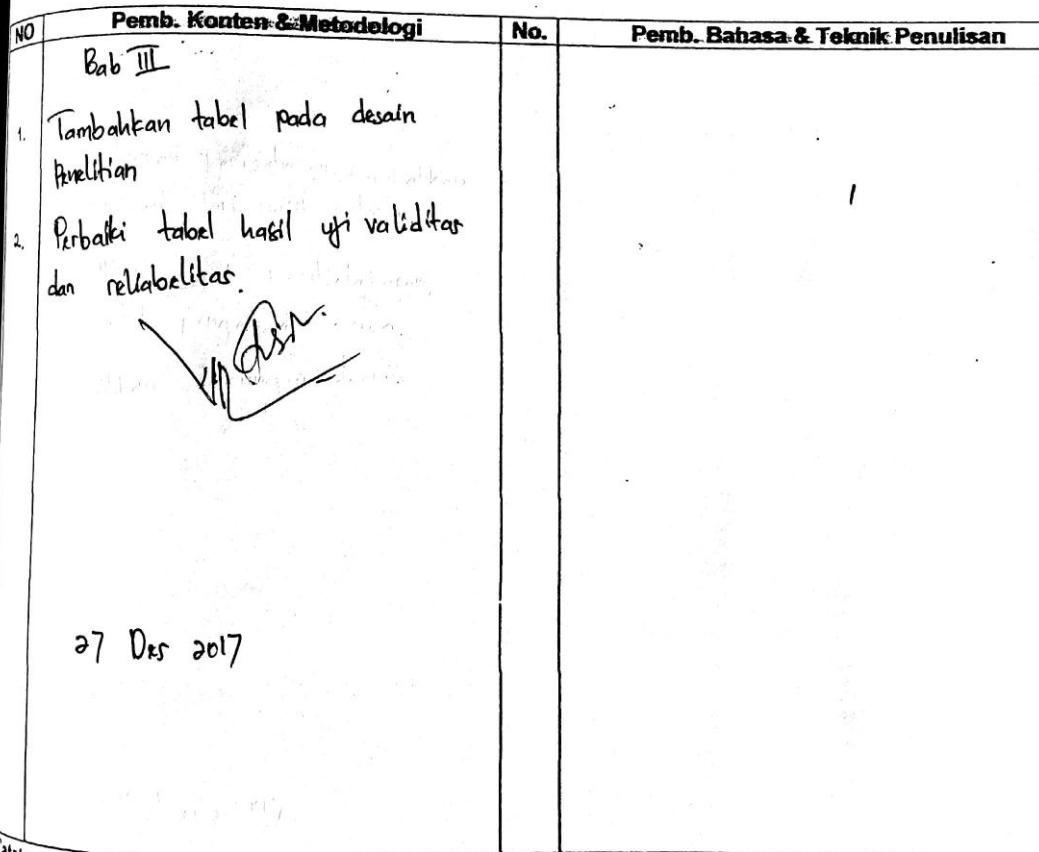 NO Pemb. Konten & Metodologi No. Pemb. Bahasa & Teknik Penulisan
Bab III
1. Tambahkan tabel pada desain
Penelitian
2. Perbaiki tabel hasil uji validitas
dan reliabelitas.
27 Des 2017